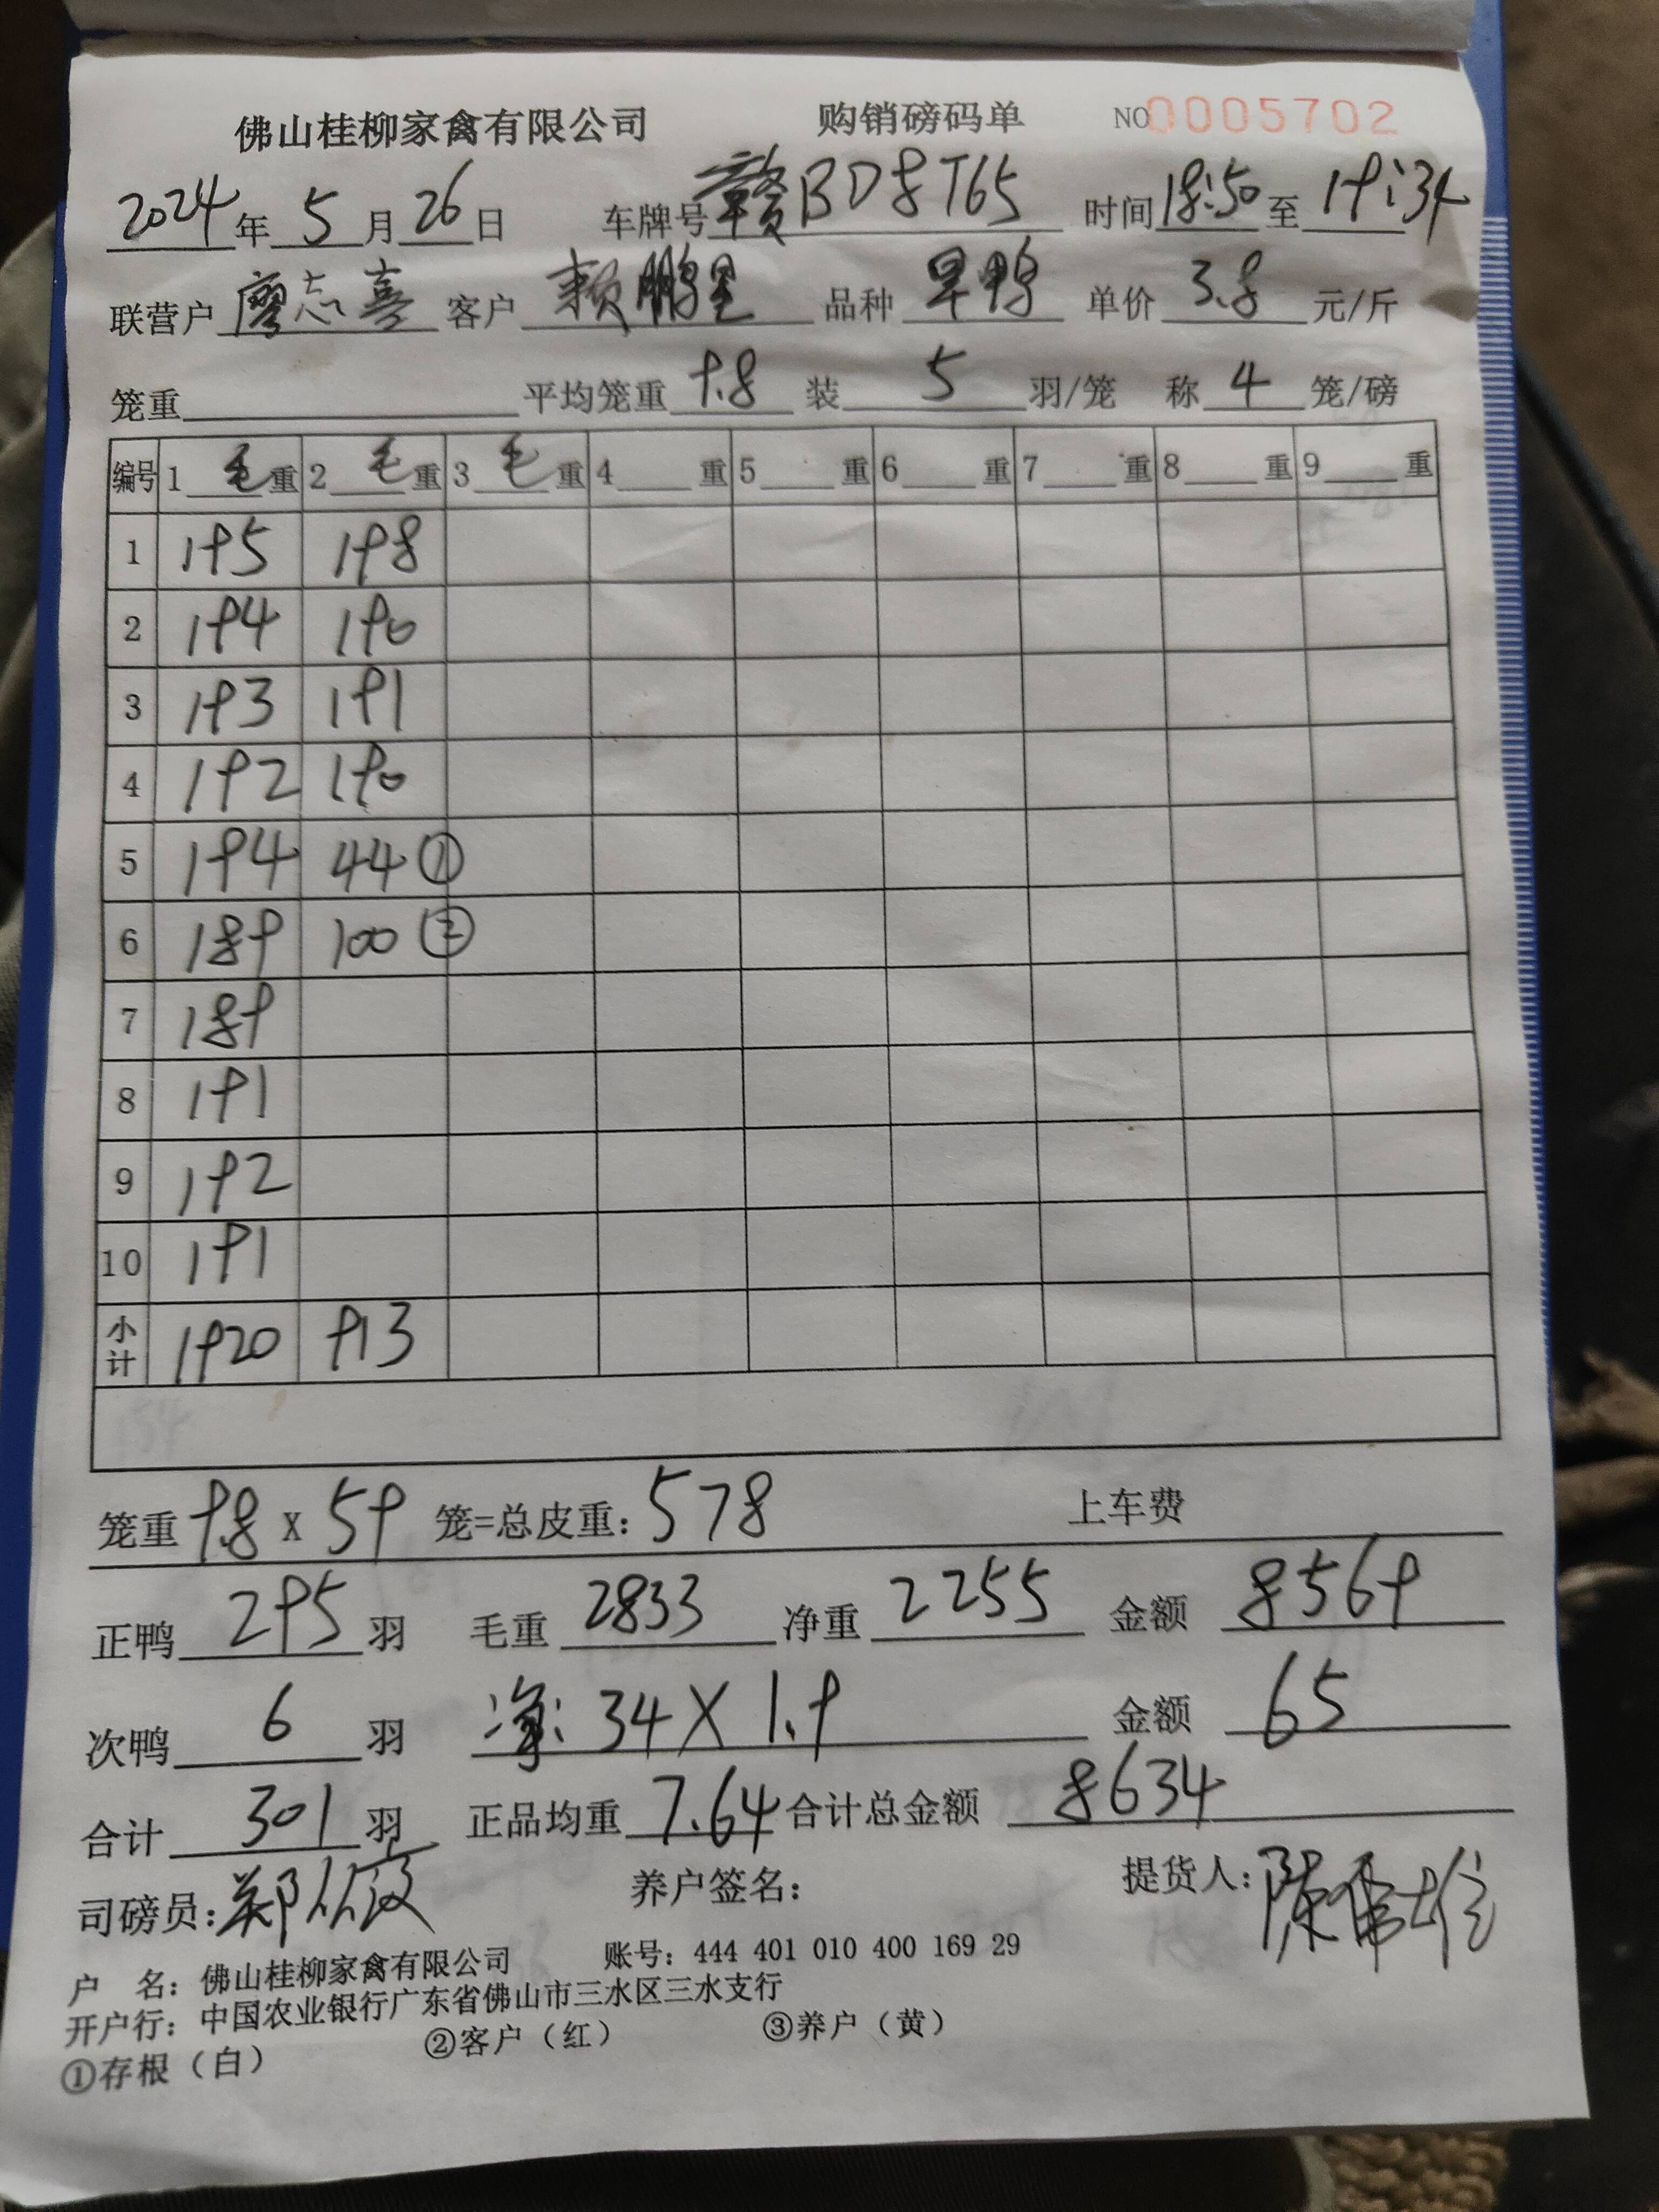 佛山桂柳家禽有限公司 购销磅码单 NO 0005702
2024年 5月 26日 车牌号 赣BD8T65 时间 18:50 至 19:34
联营户 廖志喜 客户 赖鹏星 品种 旱鸭 单价 3.8 元/斤
笼重 平均笼重 9.8 装 5 羽/笼 称 4 笼/磅
编号 1 毛重 2 毛重 3 毛重 4 重 5 重 6 重 7 重 8 重 9 重
1 195 198
2 194 190
3 193 191
4 192 190
5 194 44 ①
6 189 100 ②
7 189
8 191
9 192
10 191
小计 1920 913
笼重 9.8 x 59 笼=总皮重: 578 上车费
正鸭 295 羽 毛重 2833 净重 2255 金额 8569
次鸭 6 羽 净: 34 X 1.9 金额 65
合计 301 羽 正品均重 7.64 合计总金额 8634
司磅员: 郑 养户签名: 提货人: 陈雄
户 名: 佛山桂柳家禽有限公司 账号: 444 401 010 400 169 29
开户行: 中国农业银行广东省佛山市三水区三水支行
①存根（白） ②客户（红） ③养户（黄）